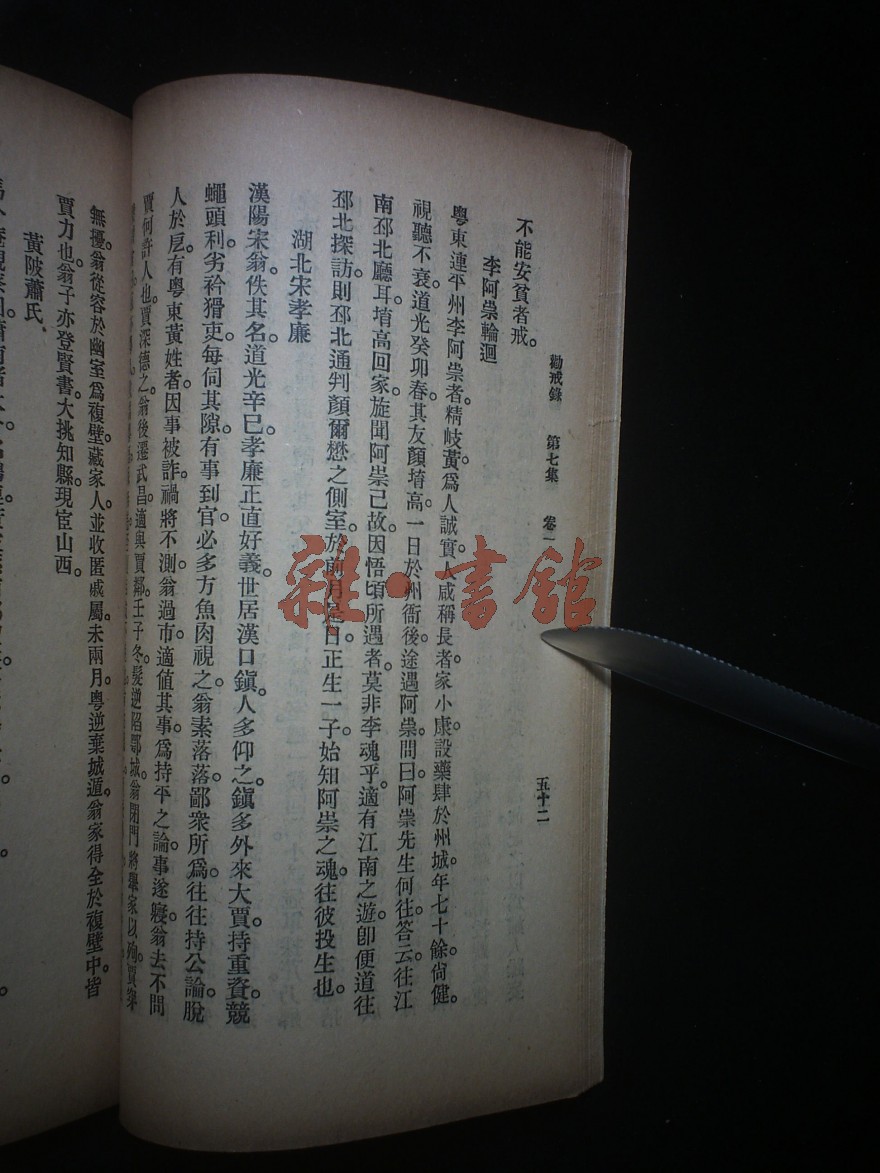 勸戒錄　第七集　卷一　五十二
不能安貧者戒。
李阿崇輪迴
粵東連平州李阿崇者精岐黃爲人誠實人咸稱長者家小康設藥肆於州城年七十餘尙健。
視聽不衰道光癸卯春其友顏堉高一日於州衙後途遇阿崇問曰阿崇先生何往答云往江
南邳北廳耳堉高回家旋聞阿崇已故因悟頃所遇者莫非李魂乎適有江南之遊卽便道往
邳北探訪則邳北通判顏爾懋之側室於前月是日正生一子始知阿崇之魂往彼投生也。
湖北宋孝廉
漢陽宋翁佚其名道光辛巳孝廉正直好義世居漢口鎭人多仰之鎭多外來大賈持重資競
蠅頭利劣衿猾吏每伺其隙有事到官必多方魚肉視之翁素落落鄙衆所爲往往持公論脫
人於戹有粵東黃姓者因事被詐禍將不測翁過市適値其事爲持平之論事遂寢翁去不問
賈何許人也賈深德之翁後遷武昌適與賈鄰壬子冬髮逆陷鄂城翁閉門將舉家以殉賈
無擾翁從容於幽室爲複壁藏家人並收匿戚屬未兩月粵逆棄城遁翁家得全於複壁中皆
賈力也翁子亦登賢書大挑知縣現宦山西。
黃陂蕭氏
雜·書館